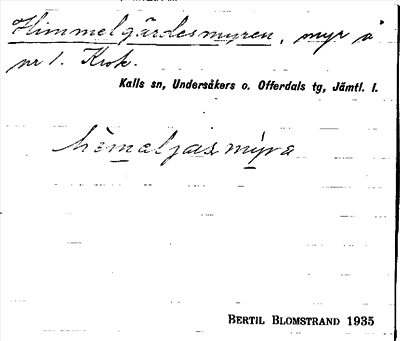 Himmelgärdesmyren, myr å
nr 1. Krok.
Kalls sn, Undersåkers o. Offerdals tg, Jämtl. l.
hèmaljasmýra
BERTIL BLOMSTRAND 1935